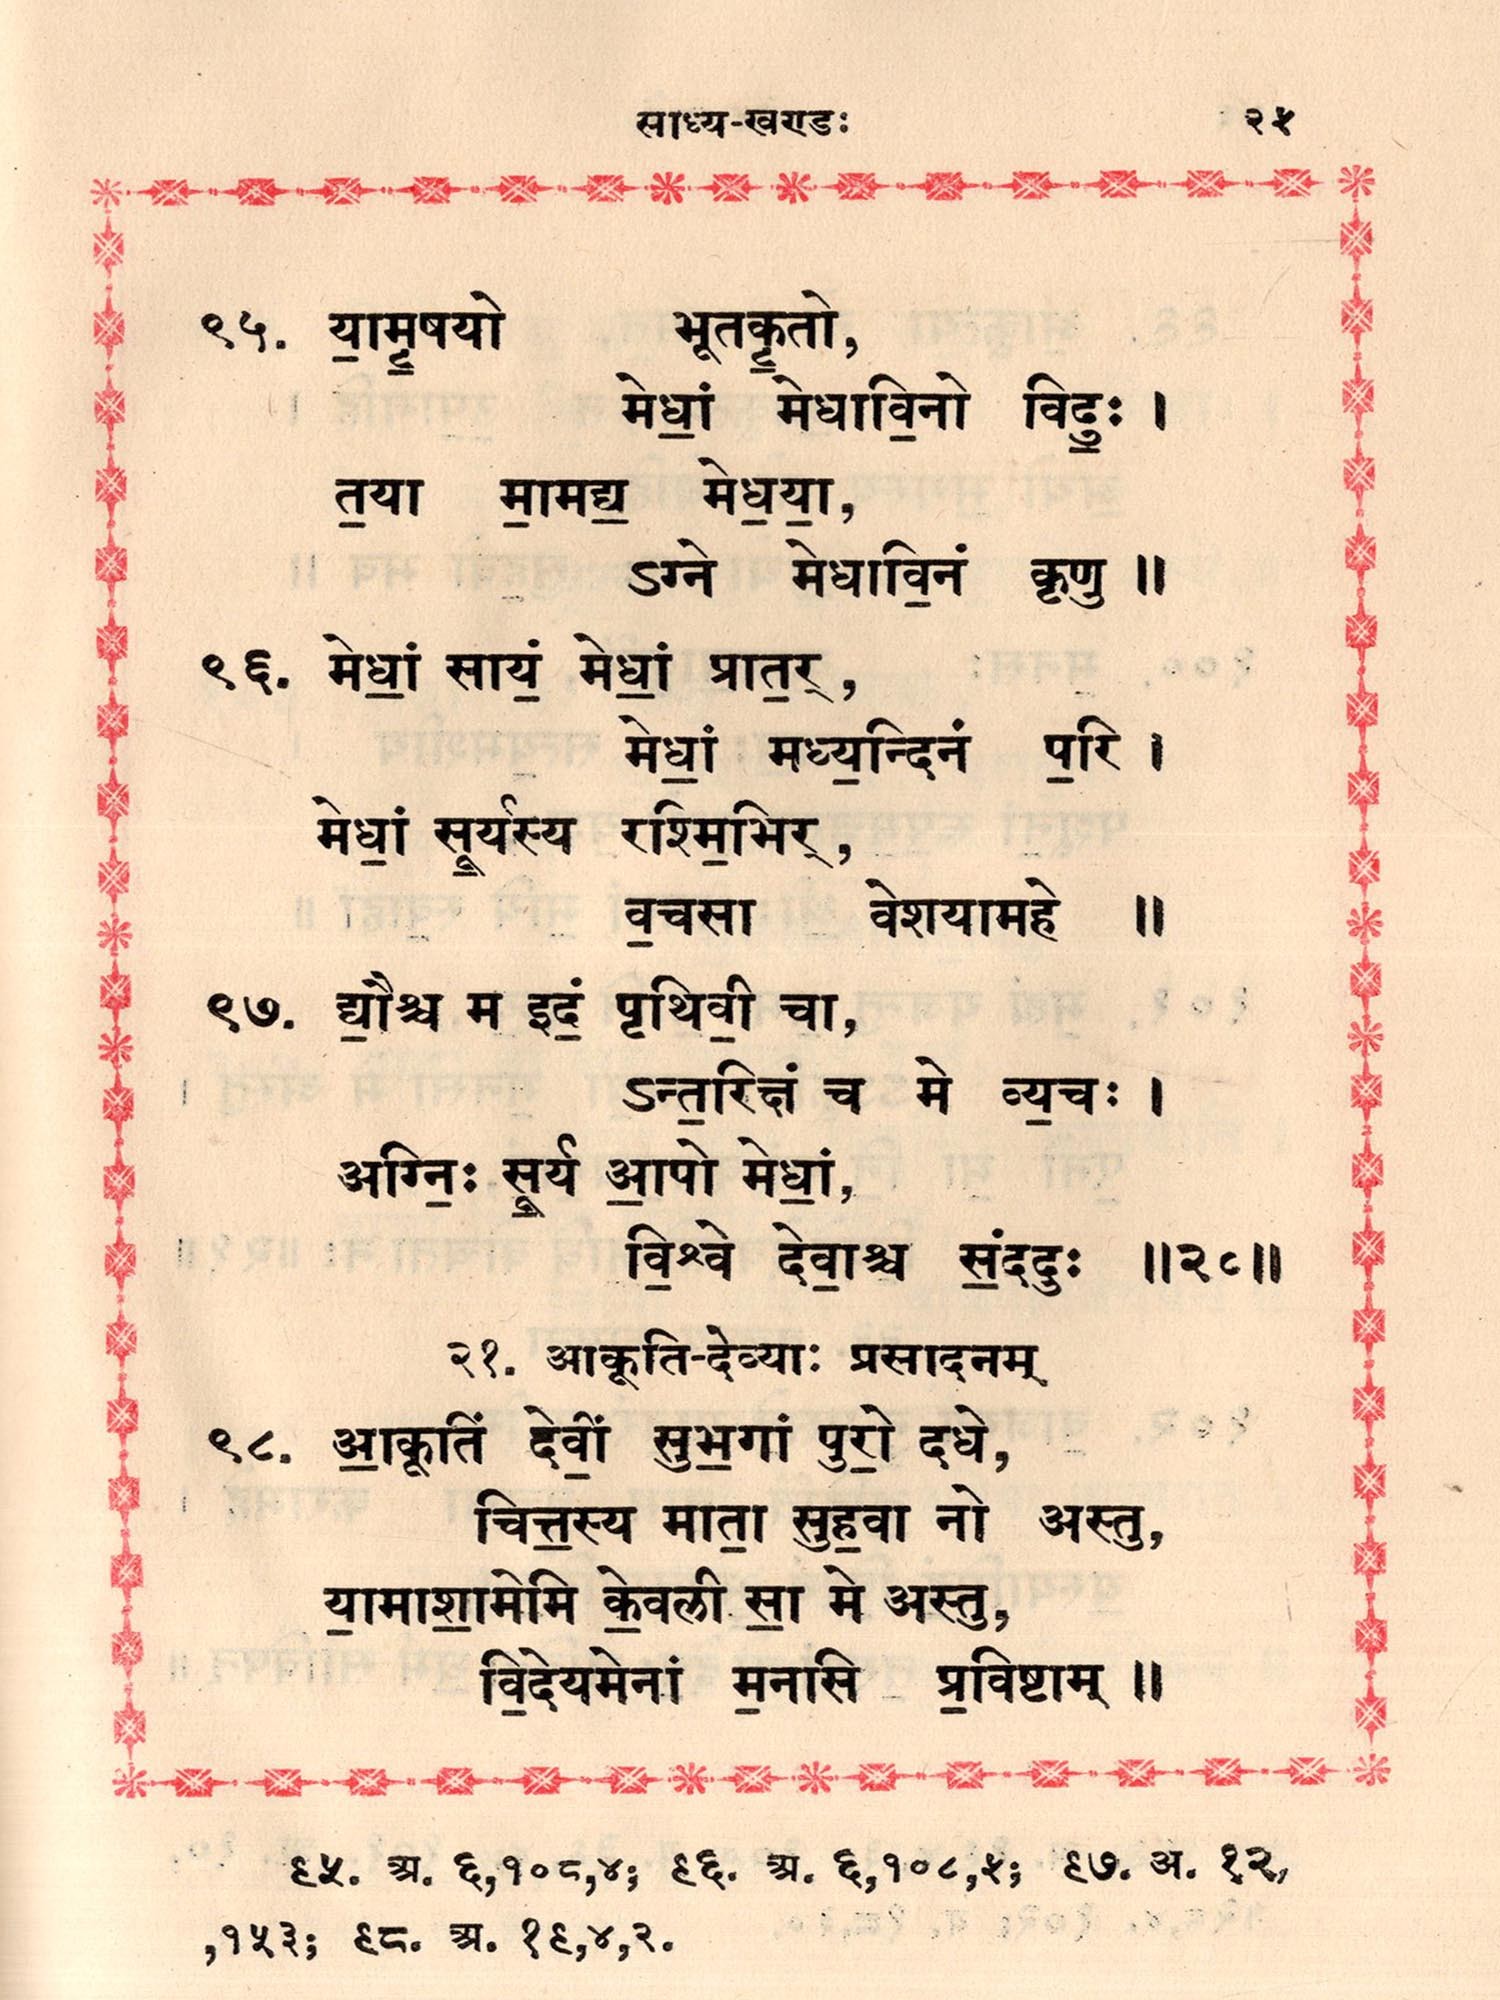 साध्य-खण्डः २५
९५. या॒मृ॒षयो भूतकृ॒तो,
मेधां॒ मेधावि॒नो विदुः॒ ।
त॒या मा॒मद्य॒ मेध॒या॒,
ऽग्ने मेधावि॒नं कृणु ॥
९६. मेधां॒ सायं॒ मेधां॒ प्रात॒र्,
मेधां॒ मध्य॒न्दिनं प॒रि ।
मेधां॒ सू॒र्यस्य रश्मि॒भिर्,
व॒चसा वेशयामहे ॥
९७. द्यौ॒श्च म इदं॒ पृथिवी॒ चा,
ऽन्त॒रिक्षं च मे व्य॒चः ।
अग्निः॒ सू॒र्य आ॒पो मेधां॒,
वि॒श्वे देवा॒श्च सं॒ददुः ॥२८॥
२१. आकूति-देव्याः प्रसादनम्
९८. आ॒कूतिं देवीं॒ सुभ॒गां पुरो॒ दधे,
चित्त॒स्य माता॒ सुह॒वा नो अस्तु,
या॒माशा॒मेमि के॒वली सा॒ मे अस्तु,
वि॒देयमेनां म॒नसि प्र॒विष्टाम् ॥
९५. अ. ६,१०८,४; ९६. अ. ६,१०८,५; ९७. अ. १२,
,१५३; ९८. अ. १९,४,२.